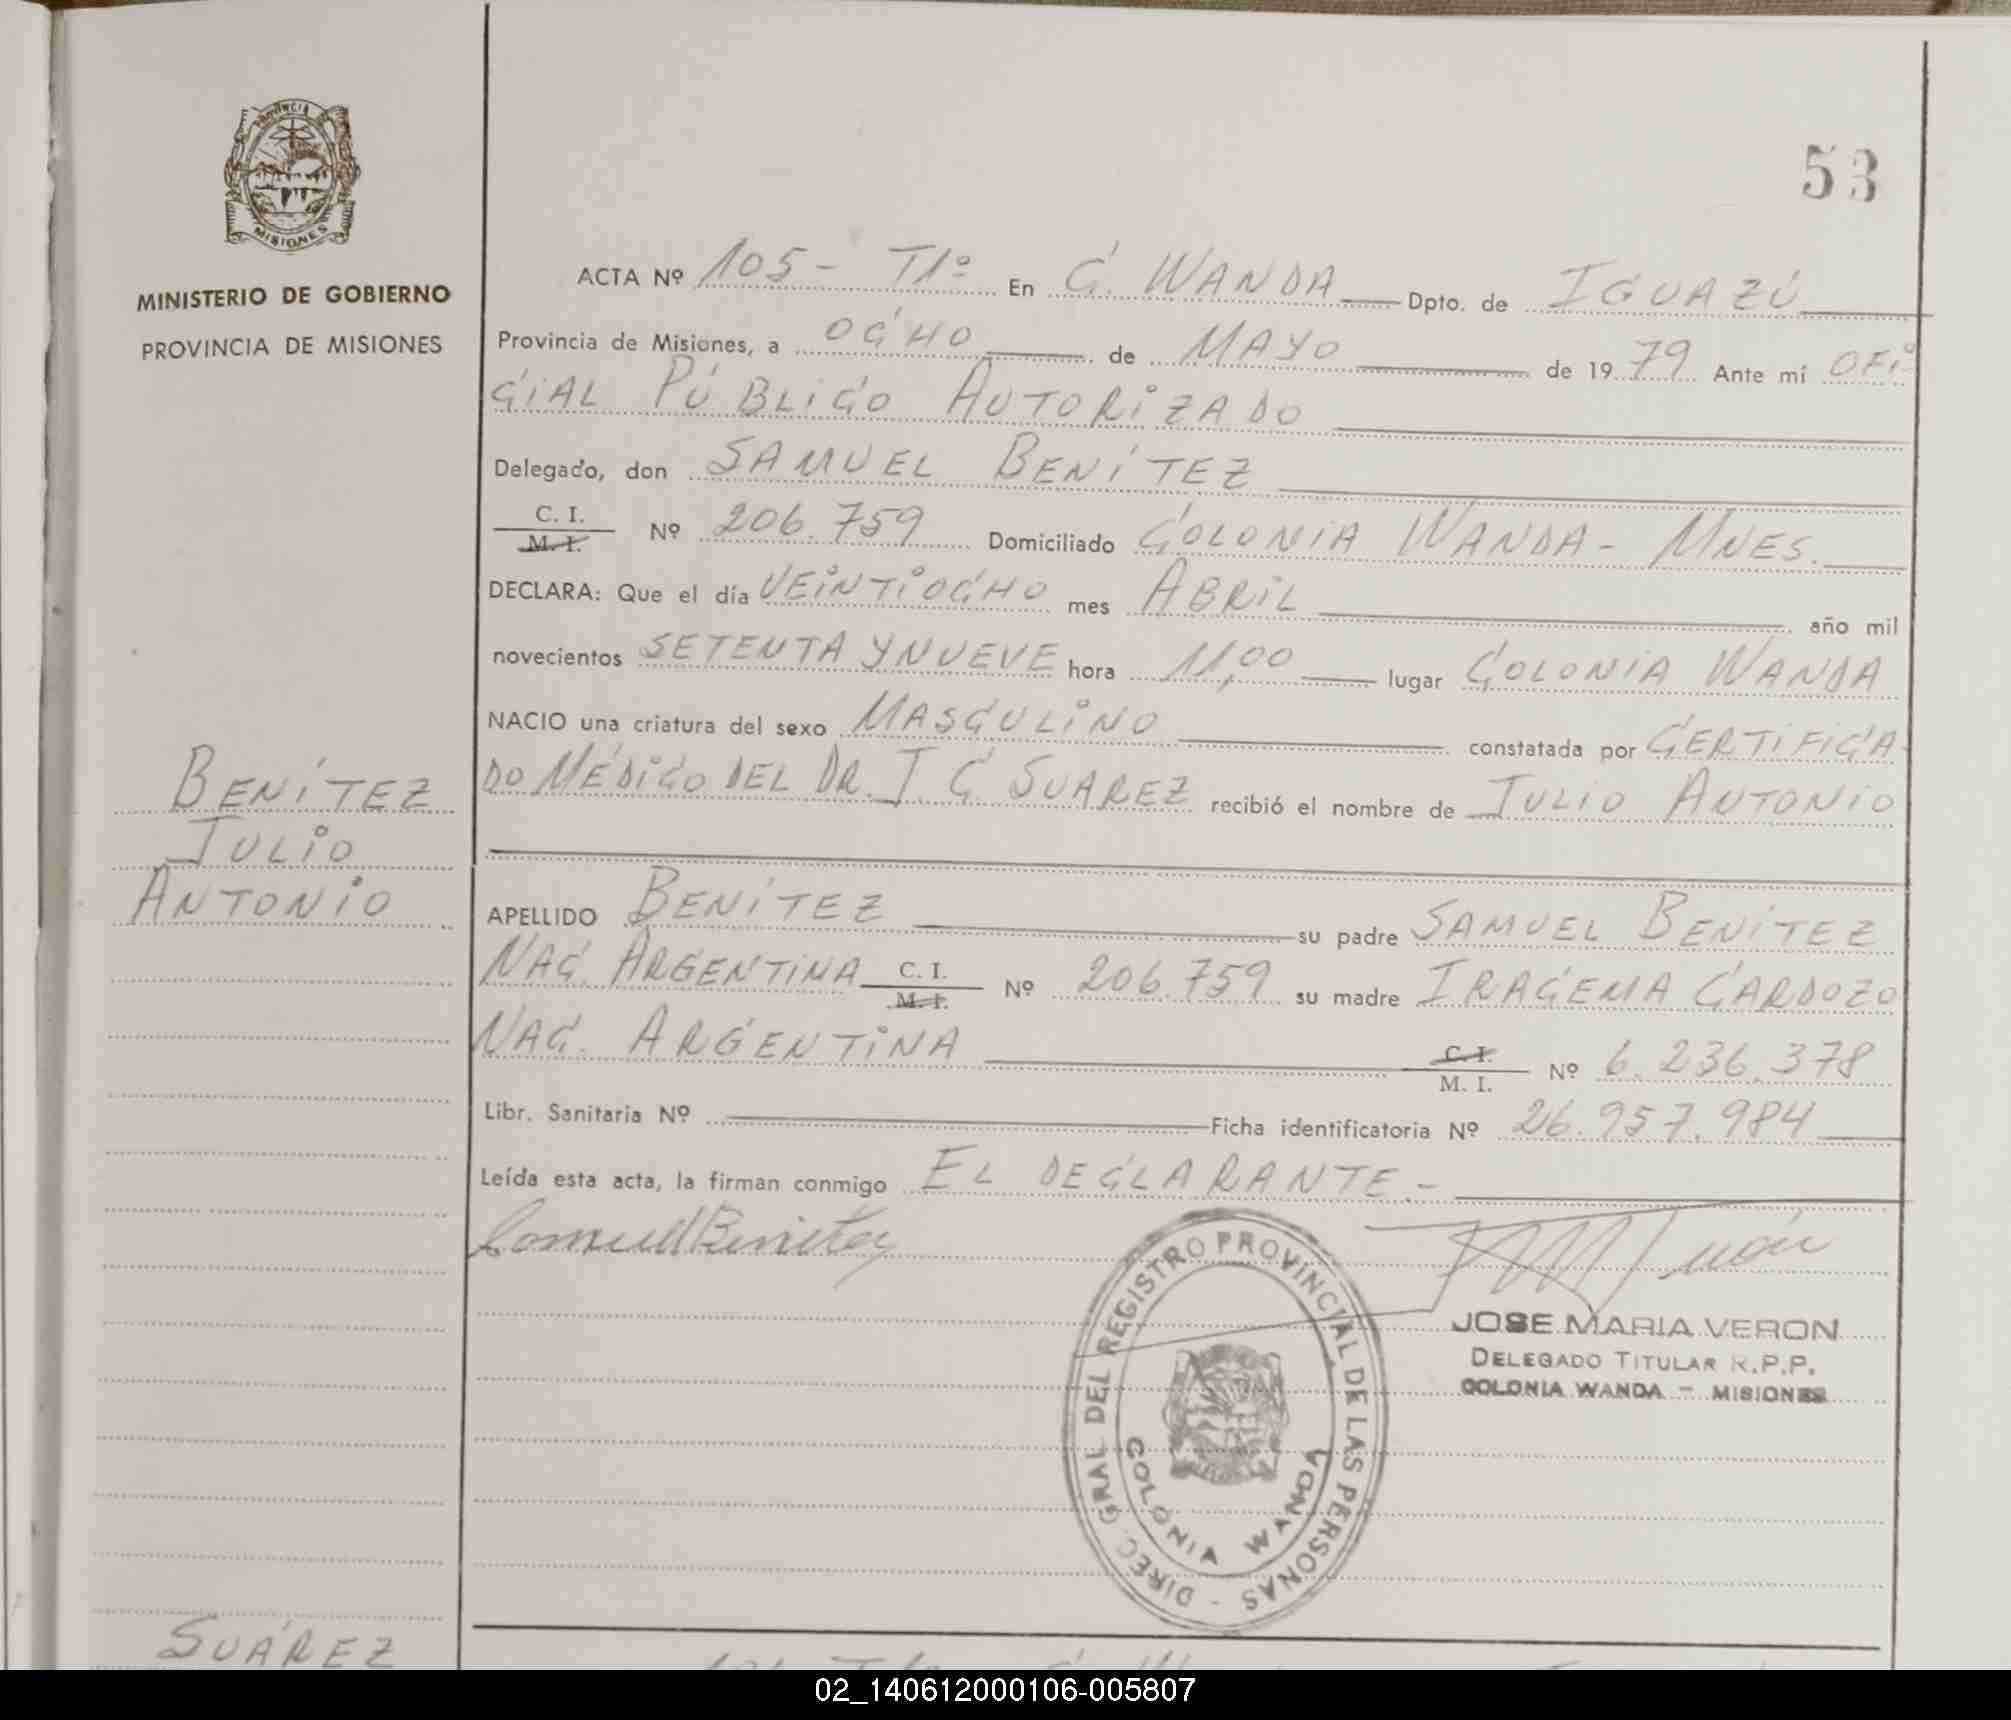 PROVINCIA
MISIONES
MINISTERIO DE GOBIERNO
PROVINCIA DE MISIONES
53
ACTA Nº 105 - T1º En C. WANDA Dpto. de IGUAZÚ
Provincia de Misiones, a OCHO de MAYO de 1979 Ante mí OFI-
CIAL PÚBLICO AUTORIZADO
Delegado, don SAMUEL BENÍTEZ
C. I.
M. I. Nº 206.759 Domiciliado COLONIA WANDA - MNES.
DECLARA: Que el día VEINTIOCHO mes ABRIL año mil
novecientos SETENTA Y NUEVE hora 11,00 lugar COLONIA WANDA
NACIO una criatura del sexo MASCULINO constatada por CERTIFICA-
DO MÉDICO DEL DR. J. C. SUAREZ recibió el nombre de JULIO ANTONIO
BENÍTEZ
JULIO
ANTONIO
APELLIDO BENÍTEZ su padre SAMUEL BENÍTEZ
NAC. ARGENTINA C. I.
M. I. Nº 206.759 su madre IRACEMA CARDOZO
NAC. ARGENTINA C. I.
M. I. Nº 6.236.378
Libr. Sanitaria Nº Ficha identificatoria Nº 26.957.984
Leída esta acta, la firman conmigo EL DECLARANTE.-
Samuel Benitez
JOSE MARIA VERON
DELEGADO TITULAR R.P.P.
COLONIA WANDA - MISIONES
DIREC. GRAL DEL REGISTRO PROVINCIAL DE LAS PERSONAS -
COLONIA WANDA
SUÁREZ
02_140612000106-005807